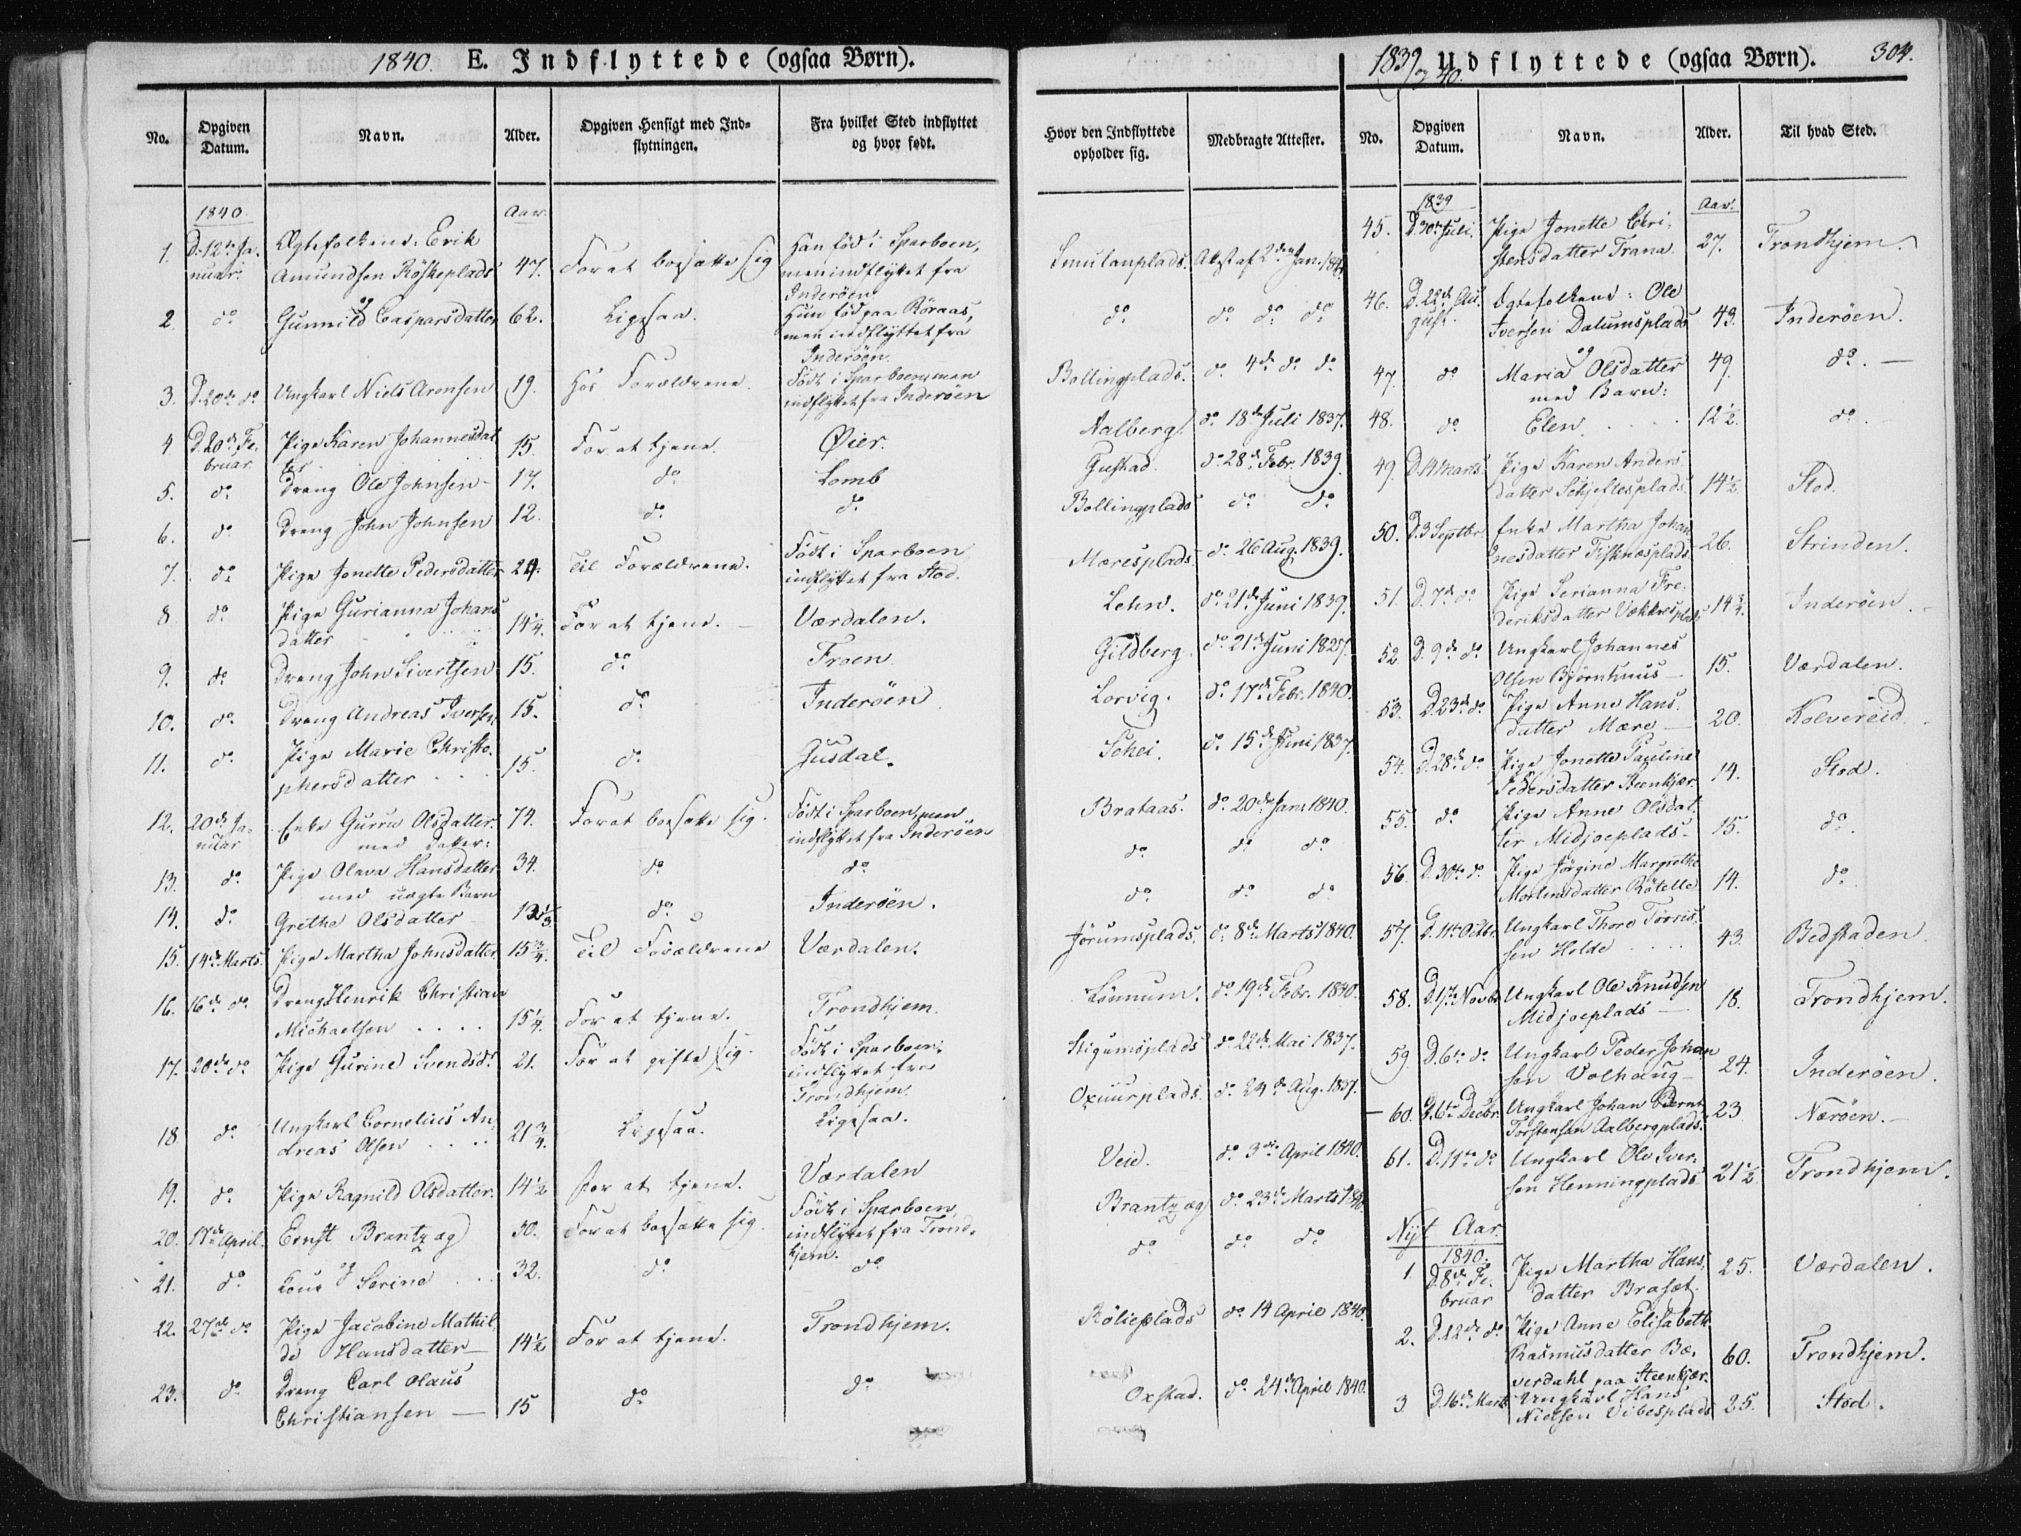 1840. E. Indflyttede (ogsaa Børn).
No.
Opgiven Datum.
Navn.
Alder.
Opgiven Hensigt med Ind-
flytningen.
Fra hvilket Sted indflyttet
og hvor født.
1840.
Aar.
1. D. 12te Ja-
nuar. Ægtefolkene: Erik
Amundsen Röskeplads 47. For at bosætte sig Han föd i Sparboen,
men indflyttet fra
Inderöen
2. do og
Gunnild Caspersdatter 62. Ligesaa. Hun föd paa Röraas,
men indflyttet fra
Inderöen.
3. D. 20de do Ungkarl Niels Arensen 19. Hos Forældrene. Födt i Sparboen, men
indflyttet fra Inderöen
4 D. 20de Fe-
bruar. Pige Karen Johannesdat-
ter 15. For at tjene. Øier.
5. do Dreng Ole Johnsen 17. do Lomb
6. do Dreng John Johnsen 12. do do
7. do Pige Jonette Pedersdatter Til Forældrene. Födt i Sparboen
indflyttet fra Stod.
8 do Pige Gurianna Johans
datter 14¼. For at tjene. Værdalen.
9. do Dreng John Sivertsen 15. do Froen
10. do Dreng Andreas Iversen 15. do Inderöen
11. do Pige Marie Christo-
phersdatter 15. do Gusdal.
12. 20de Ja-
nuar Enke Gurru Olsdatter 74. For at bosætte sig. Födt i Sparboen, men
med Datter: indflyttet fra Inderöen
13. do Pige Olava Hansdatter 34. do do
med uægte Barn
14. do Grethe Olsdatter do Inderöen.
15. 14de Marts. Pige Martha Johnsdatter 15¾. Til Forældrene Værdalen.
16. 16de do Dreng Henrik Christian
Michaelsen 15¼. For at tjene. Trondhjem.
17. 20de do Pige Gurine Svendsd. 21. For at gifte sig. Födt i Sparboen,
indflyttet fra
Trondhjem.
18. do Ungkarl Cornelius An-
dreas Olsen 21¾. Ligesaa. Ligesaa.
19. do Pige Ragnild Olsdatter. 14½ for at tjene. Værdalen
20. 17de April. Ernst Brantzæg 30. For at bosætte sig. Födt i Sparboen,
indflyttet fra Trond-
hjem.
21. do Kone Serine 32. do do
22. 27de do Pige Jacobine Mathil-
de Hansdatter 14½ For at tjene. Trondhjem.
23. do Dreng Carl Olaus
Christiansen 15 do do
1839 og 40. Udflyttede (ogsaa Børn). 304.
Hvor den Indflyttede
opholder sig.
Medbragte Attester.
Smulanplads. Attest af 2den Jan.
do do do do
Bollingplads. do 4de do do
Aalberg. do 18de Juli 1837.
Gustad. do 28de Febr. 1839.
Bollingplads do do
Mæresplads. do 26 Aug. 1839.
Lehn. do 21de Juni 1839.
Gildberg. do 21de Juni
Lorvig. do 17de Febr. 1840.
Tohei. do 15de Juni 1837.
Brataas. do 20de Janr 1840.
do do do
do do do
Jörumsplads. do 8de Marts 1840.
Lönnum. do 19de Febr. 1840.
Stigumsplads do 22de Mai 1837.
Oxuurplads. do 24de Aug. 1837.
Veie. do 3die April 1840.
Brantzæg do 23de Marts 1840.
do do do
Rölieplads do 14 April 1840.
Oxstad. do 24de April 1840.
No.
Opgiven Datum.
Navn.
Alder.
Til hvad Sted.
1839
Aar.
45. D. 30te Juli. Pige Jonette Chri-
stensdatter Trana 27. Trondhjem.
46. D. 22de Au-
gust. Ægtefolkene: Ole
Iversen Dalumsplads 43. Inderöen.
47. do og
Maria Olsdatter 49. do
med Barn:
48. do Elen 12½. do
49. Pige Karen Anders
datter Schjeflesplads. 14½. Stod.
50. D. 3 Septbr. Enke Martha Johan-
nesdatter 26. Strinden.
51. D. 7de do Pige Serianna Fre-
deriksdatter 14¾. Inderöen.
52. D. 9de do Ungkarl Johannes
Olsen Björnhuus 15. Værdalen.
53. D. 23de do Pige Anne Hans-
datter Mære 20. Kolvereid.
54. D. 28de do Pige Jonette Pauline
Pedersdatter Steenkjær 14. Stod.
55. do Pige Anne Olsdat-
ter Midjoeplads 15. do.
56. D. 30te do Pige Jörgine Margrethe
Mortensdatter 14. do.
57. D. 11te Octbr. Ungkarl Thore Torris-
sen Holde 43. Bedstaden.
58. Novbr. Ungkarl Ole Knudsen
Midjoeplads 18. Trondhjem.
59. D. 6te do Ungkarl Peder Johan-
sen Volhaug 24. Inderöen.
60. D. 6te Decbr. Ungkarl Johan Bernt
Torstensen Aalbergplads. 23 Næröen.
61. D. 11te do Ungkarl Ole Iver-
sen Henningplads 21½. Trondhjem.
Nyt Aar.
1840.
1. D. 8de Fe-
bruar Pige Martha Hans-
datter Braset. 25. Værdalen.
2. D. 22de do Pige Anne Elisabeth
Rasmusdatter Bæ-
verdahl paa Steenkjær. 60. Trondhjem.
3 D. 16de Marts Ungkarl Hans
Nielsen Vibesplads 25. Stod.